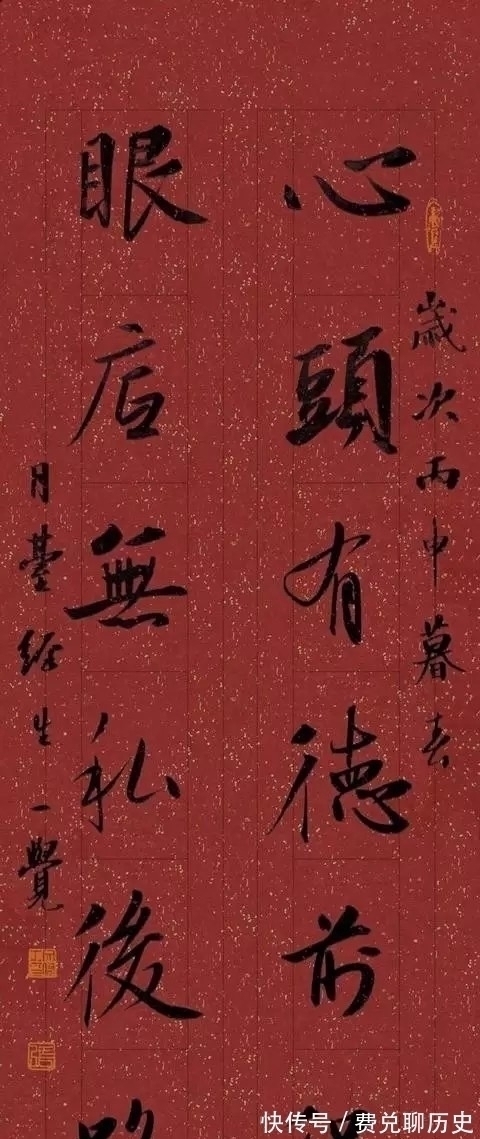 歲次丙申暮春
心頭有德前
眼底無私後
月臺經生一覺
快传号/费兑聊历史